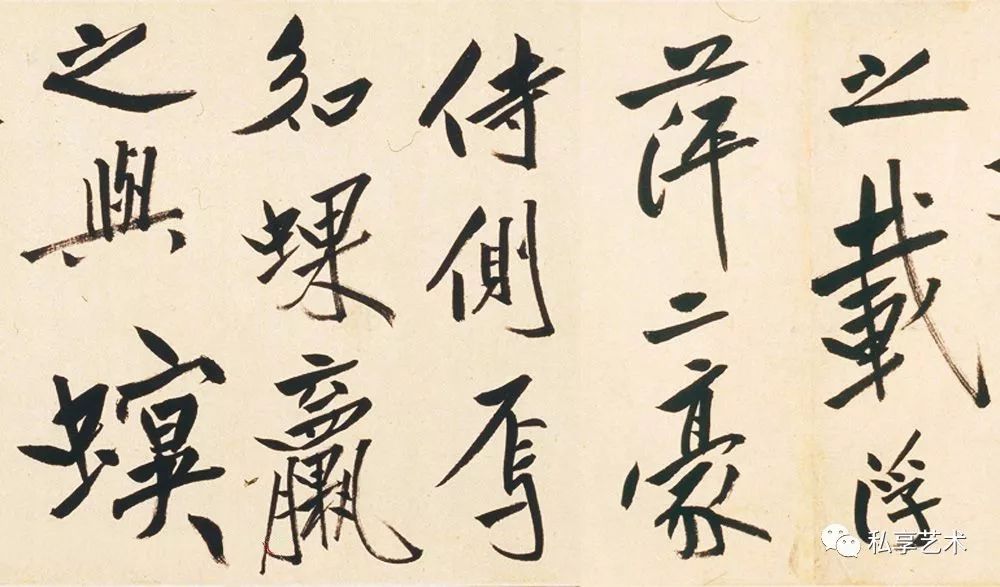 之載浮
萍二豪
侍側焉
如蜾蠃
之與螟
私享艺术